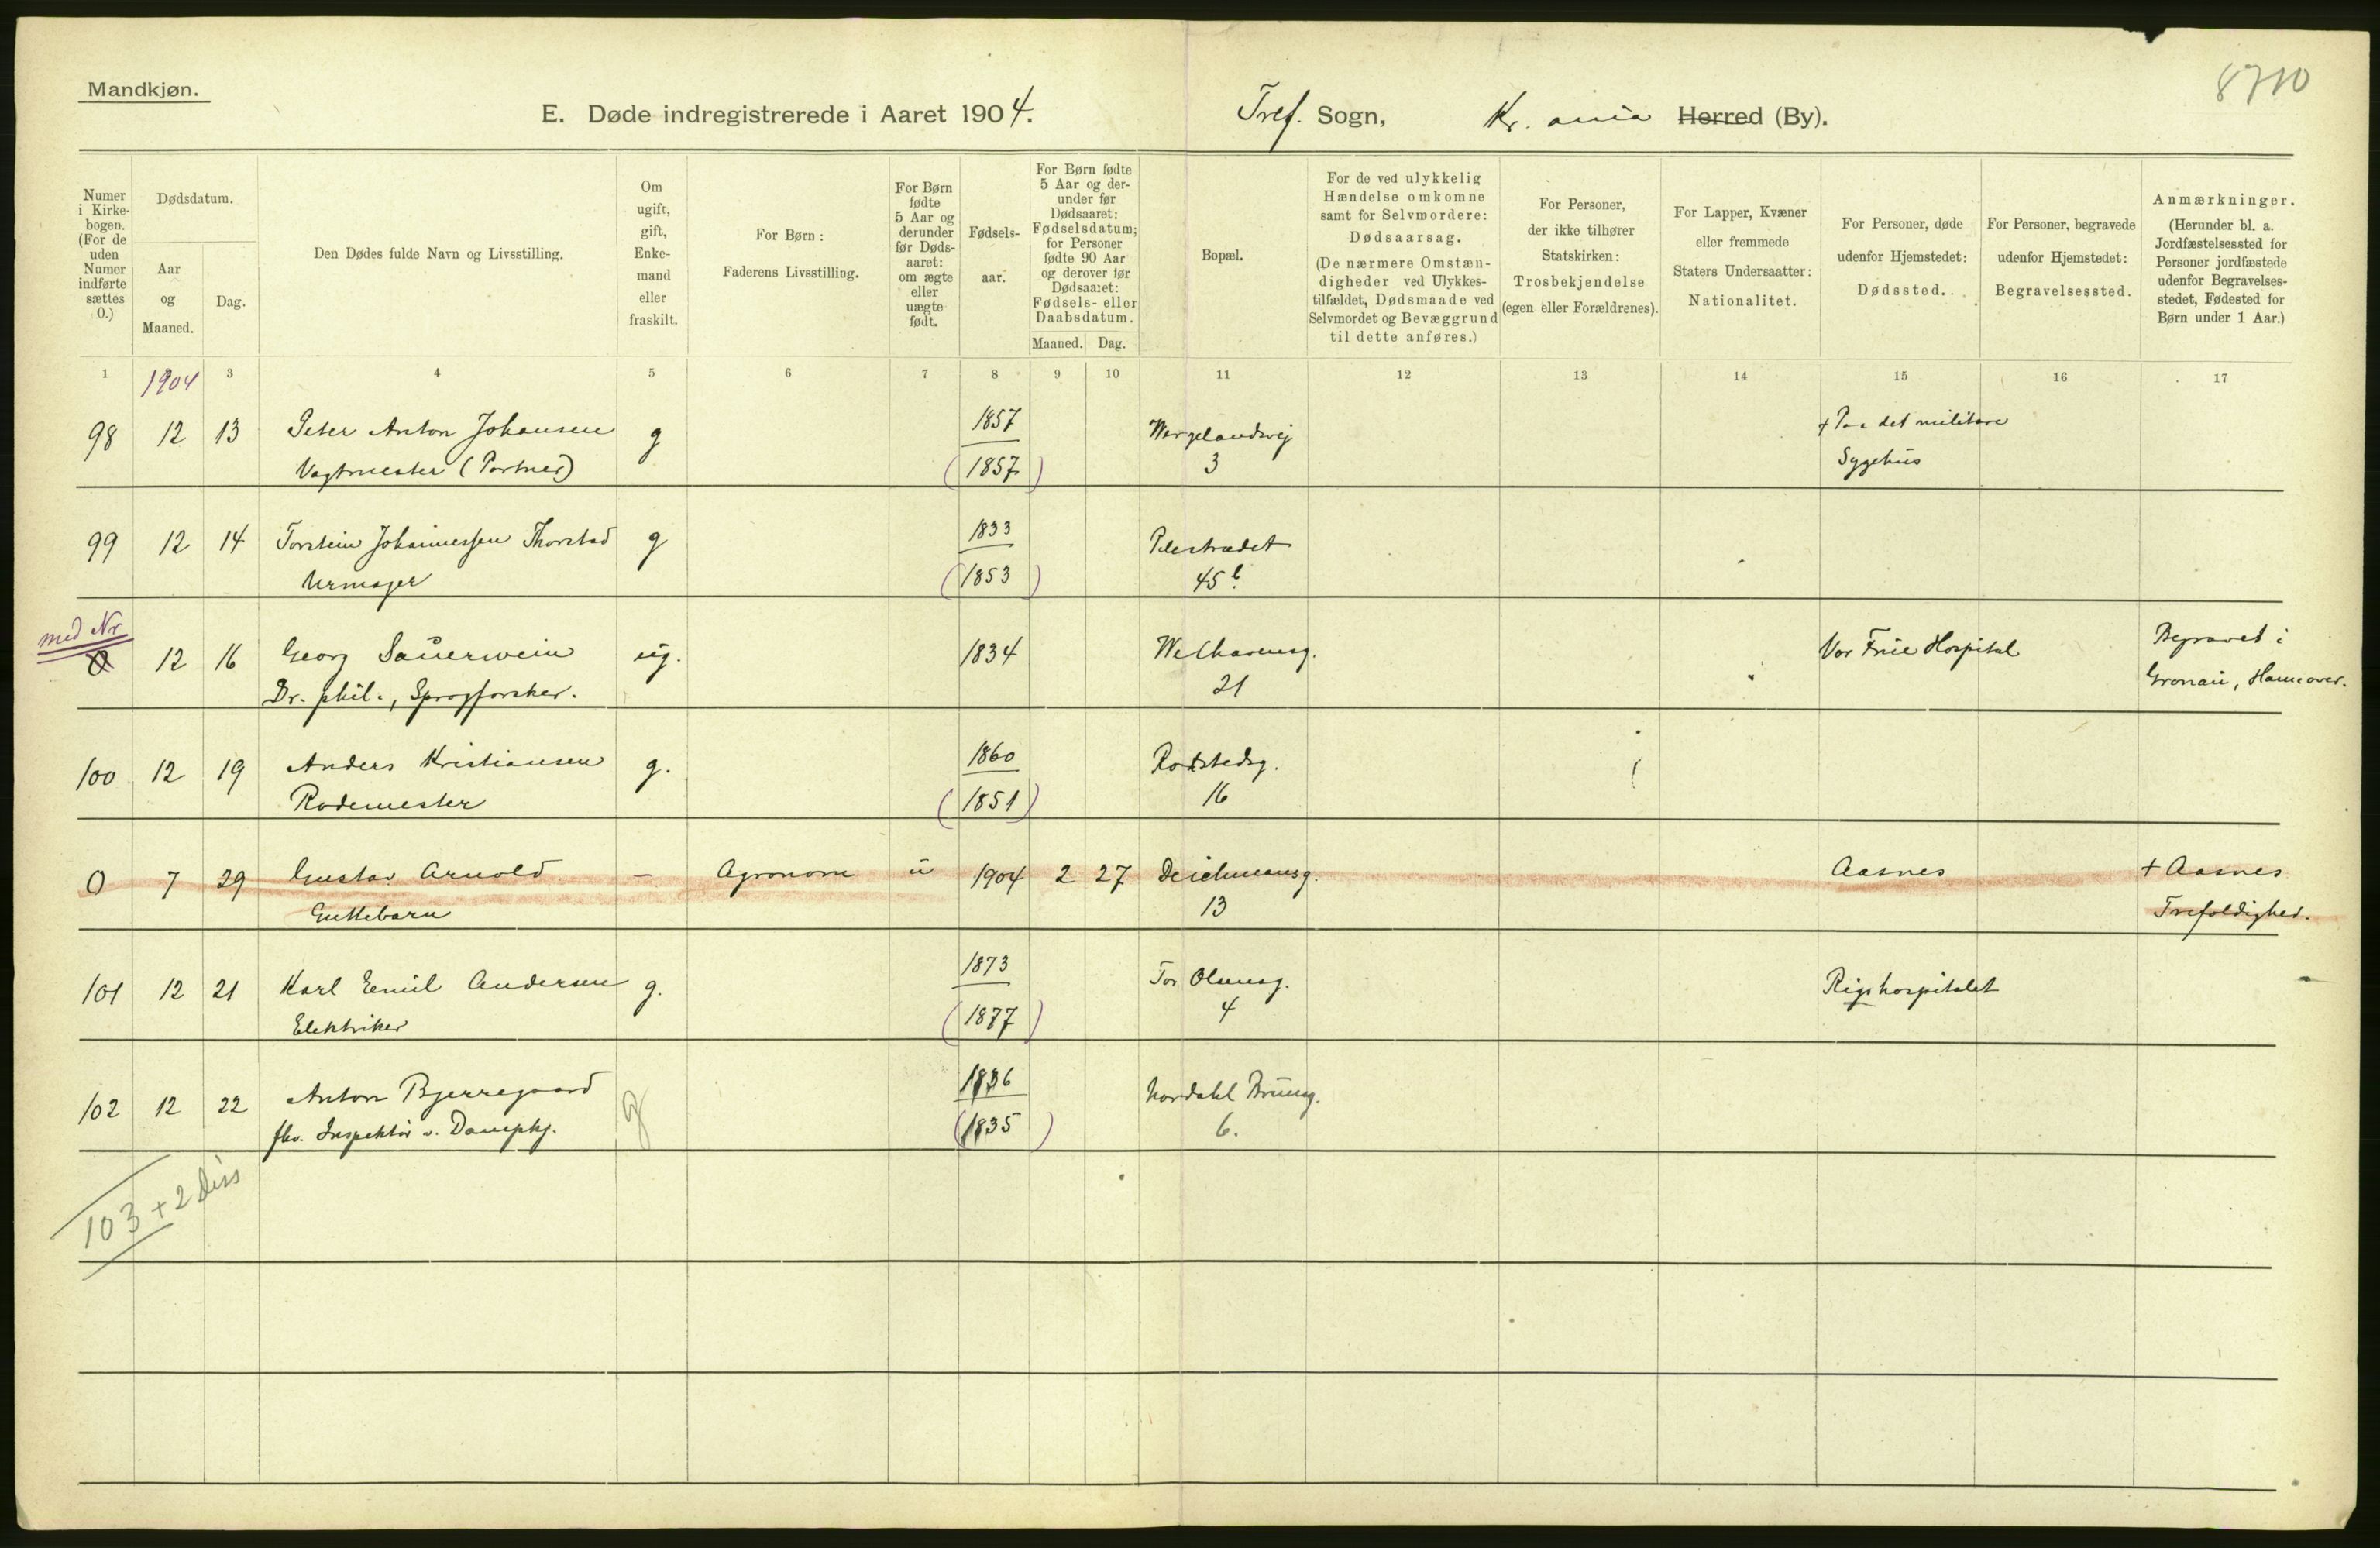 Mandkjøn.
8710
E. Døde indregistrerede i Aaret 1904.
Tref. Sogn, Kr. ania Herred (By).
Numer i Kirke- bogen. (For de uden Numer indførte sættes 0.)
Dødsdatum.
Aar og Maaned.
Dag.
Den Dødes fulde Navn og Livsstilling.
Om ugift, gift, Enke- mand eller fraskilt.
For Børn: Faderens Livsstilling.
For Børn fødte 5 Aar og derunder før Døds- aaret: om ægte eller uægte født.
Fødsels- aar.
For Børn fødte 5 Aar og der- under før Dødsaaret: Fødselsdatum; for Personer fødte 90 Aar og derover før Dødsaaret: Fødsels- eller Daabsdatum.
Maaned. Dag.
Bopæl.
For de ved ulykkelig Hændelse omkomne samt for Selvmordere: Dødsaarsag. (De nærmere Omstæn- digheder ved Ulykkes- tilfældet, Dødsmaade ved Selvmordet og Bevæggrund til dette anføres.)
For Personer, der ikke tilhører Statskirken: Trosbekjendelse (egen eller Forældrenes).
For Lapper, Kvæner eller fremmede Staters Undersaatter: Nationalitet.
For Personer, døde udenfor Hjemstedet: Dødssted.
For Personer, begravede udenfor Hjemstedet: Begravelsessted.
Anmærkninger. (Herunder bl. a. Jordfæstelsessted for Personer jordfæstede udenfor Begravelses- stedet, Fødested for Børn under 1 Aar.)
1 1904 3 4 5 6 7 8 9 10 11 12 13 14 15 16 17
98 12 13 Peter Anton Johansen g 1857 Wergelandsvej + Paa det militære
Vagtmester (Portner) (1857) 3 Sygehus
99 12 14 Torstein Johannessen Thorstad g 1833 Pilestrædet
Urmager (1853) 45 b.
med Nr
0 12 16 Georg Sauerwein ug. 1834 Welhavensg. Vor Frue Hospital Begravet i
Dr. phil., Sprogforsker. 21 Gronau, Hannover.
100 12 19 Anders Kristiansen g. 1860 Rostedsg.
Rodemester (1851) 16
0 7 29 Gustav Arnold — Agronom u 1904 2 27 Deichmansg. Aasnes + Aasnes
Guttebarn 13 Trefoldighed.
101 12 21 Karl Emil Andersen g. 1873 Tor Olsensg. Rigshospitalet
Elektriker (1877) 4
102 12 22 Anton Bjerregaard g 1836 Nordahl Brunsg.
fhv. Inspektør v. Dampkj. (1835) 6.
103 + 2 Diss